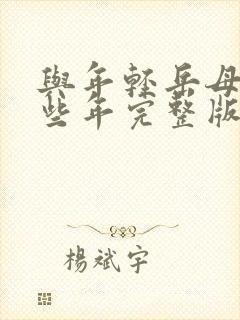 與年輕岳母
些年完整版
楊斌宇